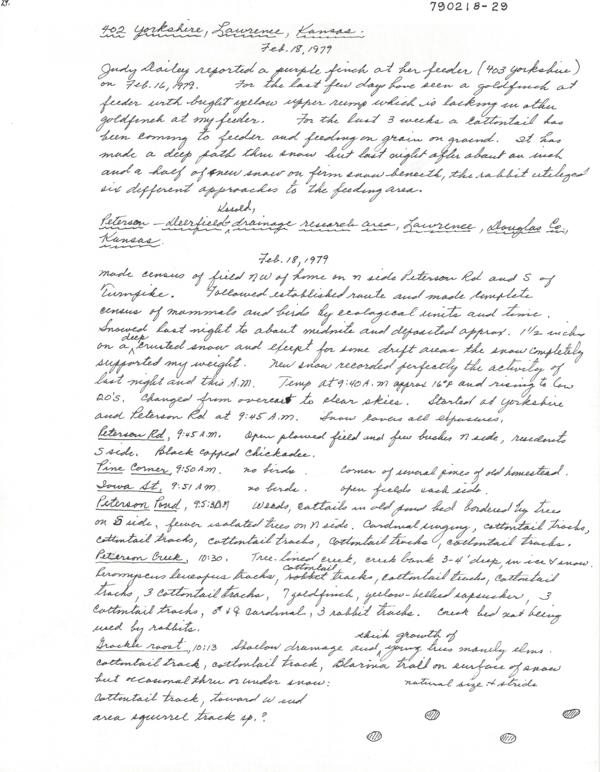 790218-29
29.
402 Yorkshire, Lawrence, Kansas.
Feb. 18, 1979
Judy Dailey reported a purple finch at her feeder (403 Yorkshire)
on Feb. 16, 1979. For the last few days have seen a goldfinch at
feeder with bright yellow upper rump which is lacking in other
goldfinch at my feeder. For the last 3 weeks a cottontail has
been coming to feeder and feeding on grain on ground. It has
made a deep path thru snow but last night after about an inch
and a half of new snow on firm snow beneath, the rabbit utilized
six different approaches to the feeding area.
Kasold,
Peterson - Deerfield drainage research area, Lawrence, Douglas Co.,
Kansas
Feb. 18, 1979
made census of field NW of home on N side Peterson Rd and S of
Turnpike. Followed established route and made complete
census of mammals and birds by ecological units and time.
Snowed last night to about midnite and deposited approx. 1 1/2 inches
on a deep crusted snow and except for some drift areas the snow completely
supported my weight. New snow recorded perfectly the activity of
last night and this A.M. Temp at 9:40 A.M approx 16°F and rising to low
20'S. Changed from overcast to clear skies. Started at Yorkshire
and Peterson Rd at 9:45 A.M. Snow covers all exposures.
Peterson Rd, 9:45 A.M. Open plowed field and few bushes N side, residents
S side. Black capped chickadee.
Pine Corner, 9:50 A.M. no birds. Corner of several pines of old homestead.
Iowa St, 9:51 A.M. no birds. open fields each side.
Peterson Pond, 9:53 AM Weeds, cattails in old pond bed bordered by trees
on S side, fewer isolated trees on N side. Cardinal singing, cottontail tracks,
cottontail tracks, cottontail tracks, cottontail tracks, cottontail tracks.
Peterson Creek, 10:30. Tree-lined creek, creek bank 3-4' deep, in ice & snow.
Peromyscus leucopus tracks, cottontail rabbit tracks, cottontail tracks, cottontail
tracks, 3 cottontail tracks, 7 goldfinch, yellow-bellied sapsucker, 3
cottontail tracks, ♂ & ♀ cardinal, 3 rabbit tracks. Creek bed not being
used by rabbits.
Grackle roost, 10:13 Shallow drainage and thick growth of young trees mainly elms.
cottontail track, cottontail track, Blarina trail on surface of snow
but occasional thru or under snow: natural size & stride
Cottontail track, toward W end
area squirrel track sp.?